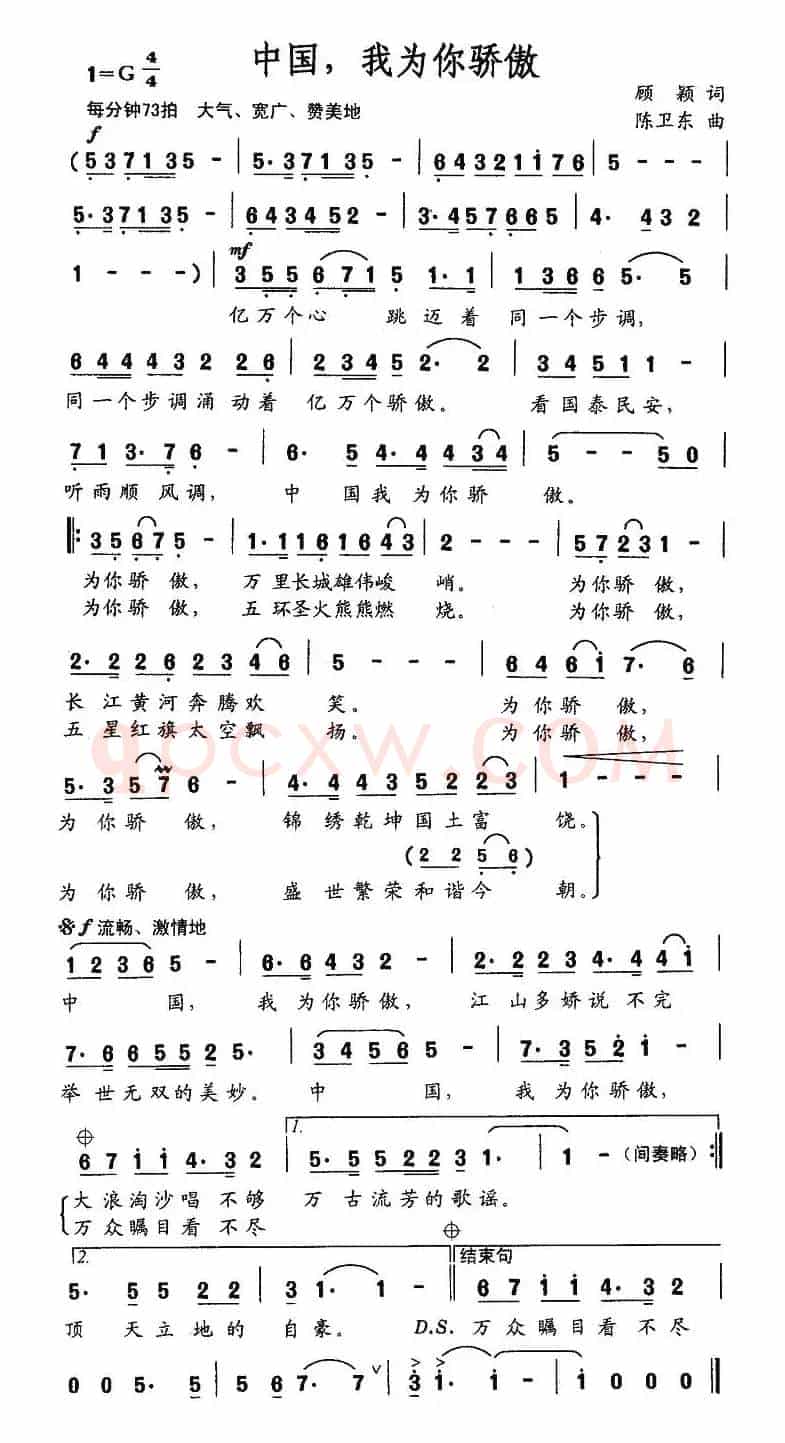 中国，我为你骄傲
1=G 4/4
顾 颖 词
每分钟73拍 大气、宽广、赞美地
陈卫东 曲
f
( 5 3 7 1 3 5 - | 5· 3 7 1 3 5 - | 6 4 3 2 1 i 7 6 | 5 - - -
5· 3 7 1 3 5 - | 6 4 3 4 5 2 - | 3· 4 5 7 6 6 5 | 4· 4 3 2
mf
1 - - - ) | 3 5 5 6 7 1 5 1·1 | 1 3 6 6 5· 5
亿万个心 跳迈着 同一个步调，
6 4 4 4 3 2 2 6 | 2 3 4 5 2· 2 | 3 4 5 1 1 -
同一个步调涌 动着 亿万个骄傲。 看国泰民安，
7 1 3· 7 6 - | 6· 5 4· 4 4 3 4 | 5 - - 5 0
听雨顺 风调， 中 国我 为你骄 傲。
3 5 6 7 5 - | 1· 1 1 6 1 6 4 3 | 2 - - - | 5 7 2 3 1 -
为你骄 傲， 万 里长城雄伟峻 峭。 为你骄 傲，
为你骄 傲， 五 环圣火熊熊燃 烧。 为你骄 傲，
2· 2 2 6 2 3 4 6 | 5 - - - | 6 4 6 i 7· 6
长 江黄河奔腾欢 笑。 为你骄 傲，
五 星红旗太空飘 扬。 为你骄 傲，
qpcxw.COM
5· 3 5 7 6 - | 4· 4 4 3 5 2 2 3 | 1 - - -
为 你骄 傲， 锦 绣乾坤国土富 饶。
( 2 2 5 6 )
为 你骄 傲， 盛 世繁荣和谐今 朝。
f 流畅、激情地
1 2 3 6 5 - | 6· 6 6 4 3 2 - | 2· 2 2 3 4· 4 4 i
中 国， 我 为你骄傲， 江 山多娇说 不完
7· 6 6 5 5 2 5· | 3 4 5 6 5 - | 7· 3 5 2 i -
举 世无双的美妙。 中 国， 我 为你骄傲，
1.
6 7 i i 4· 3 2 | 5· 5 5 2 2 3 1· | 1 - (间奏略) :||
大浪淘沙唱 不够 万 古流芳的歌谣。
万众瞩目看 不尽
2. 结束句
5· 5 5 2 2 | 3 1· 1 - || 6 7 i i 4· 3 2
顶 天立地的 自豪。 D.S. 万众瞩目看 不尽
0 0 5· 5 | 5 6 7· 7 ∨ | 3 i· i - | i 0 0 0 ||